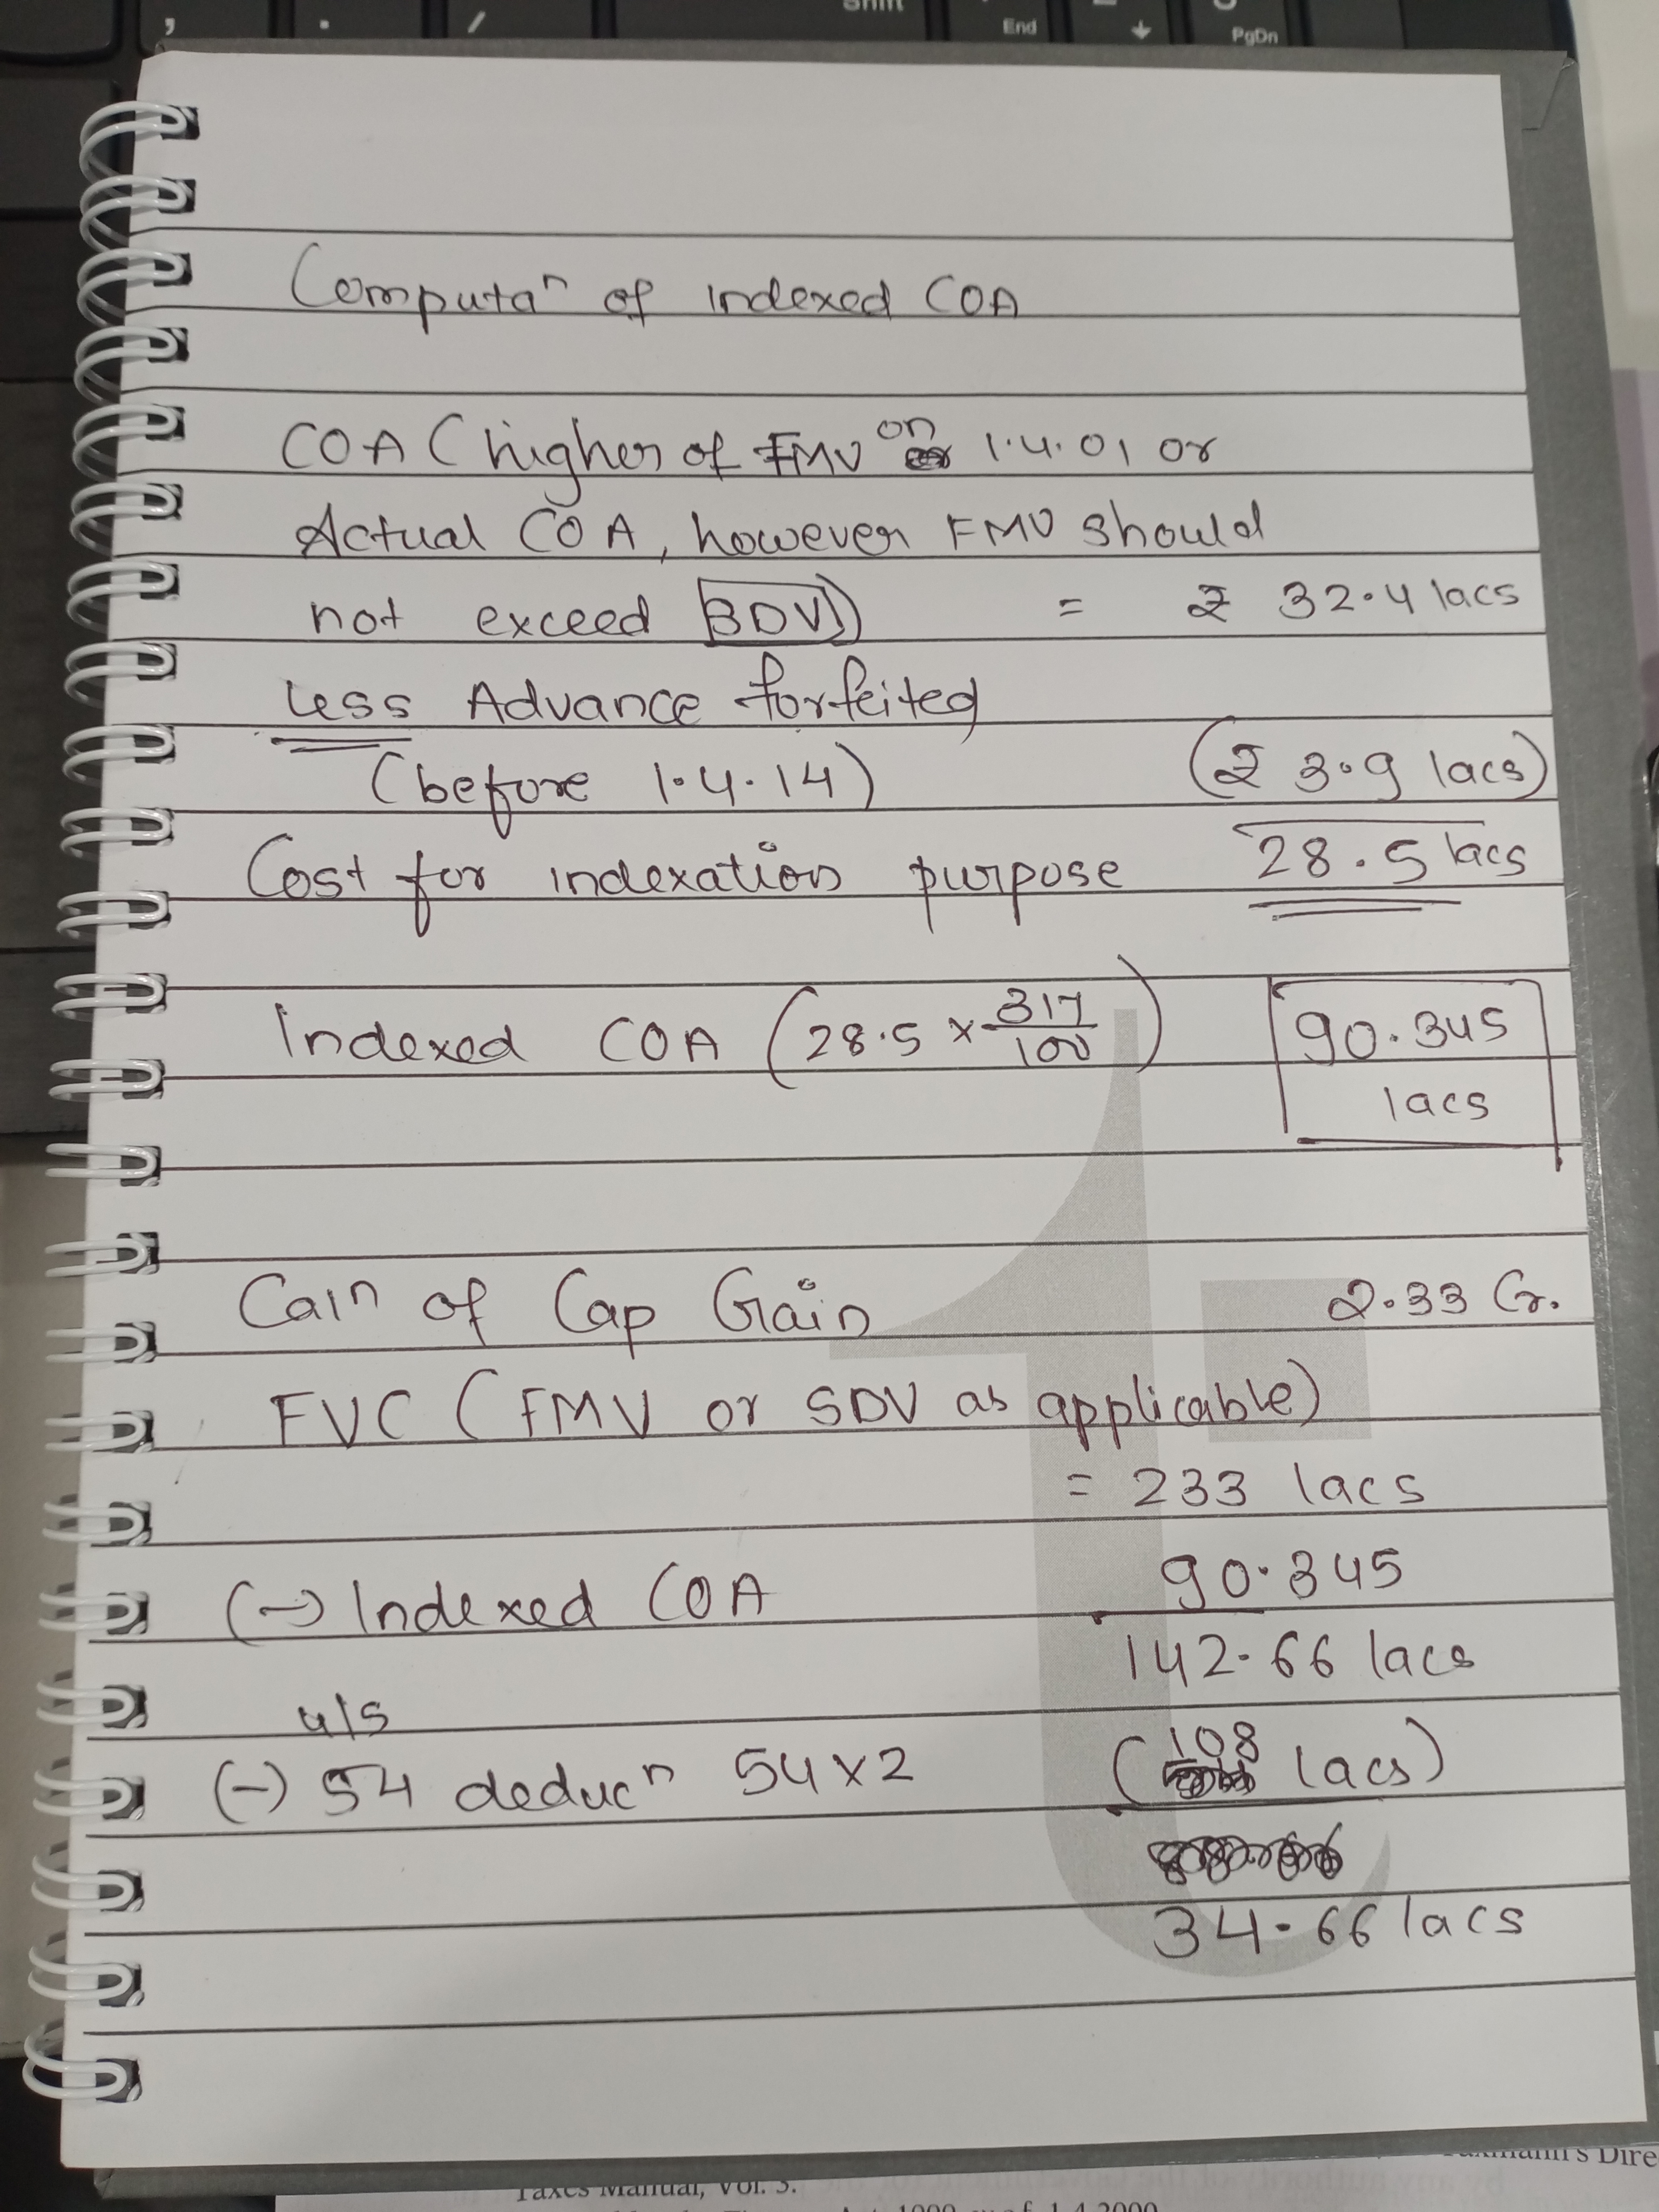 ,
.
/
Shift
End
PgDn
Computaⁿ of indexed COA
COA (higher of FMV on 1.4.01 or
Actual COA, however FMV should
not exceed SDV) = ₹ 32.4 lacs
Less Advance forfeited
(before 1.4.14) (₹ 3.9 lacs)
Cost for indexation purpose 28.5 lacs
Indexed COA (28.5 × 317/100) 90.345
lacs
Calⁿ of Cap Gain 2.33 Cr.
FVC (FMV or SDV as applicable)
= 233 lacs
(-) Indexed COA 90.345
142.66 lacs
u/s
(-) 54 deducⁿ 54×2 (108 lacs)
34.66 lacs
Taxmann's Dire
Taxes Manual, Vol. 3.